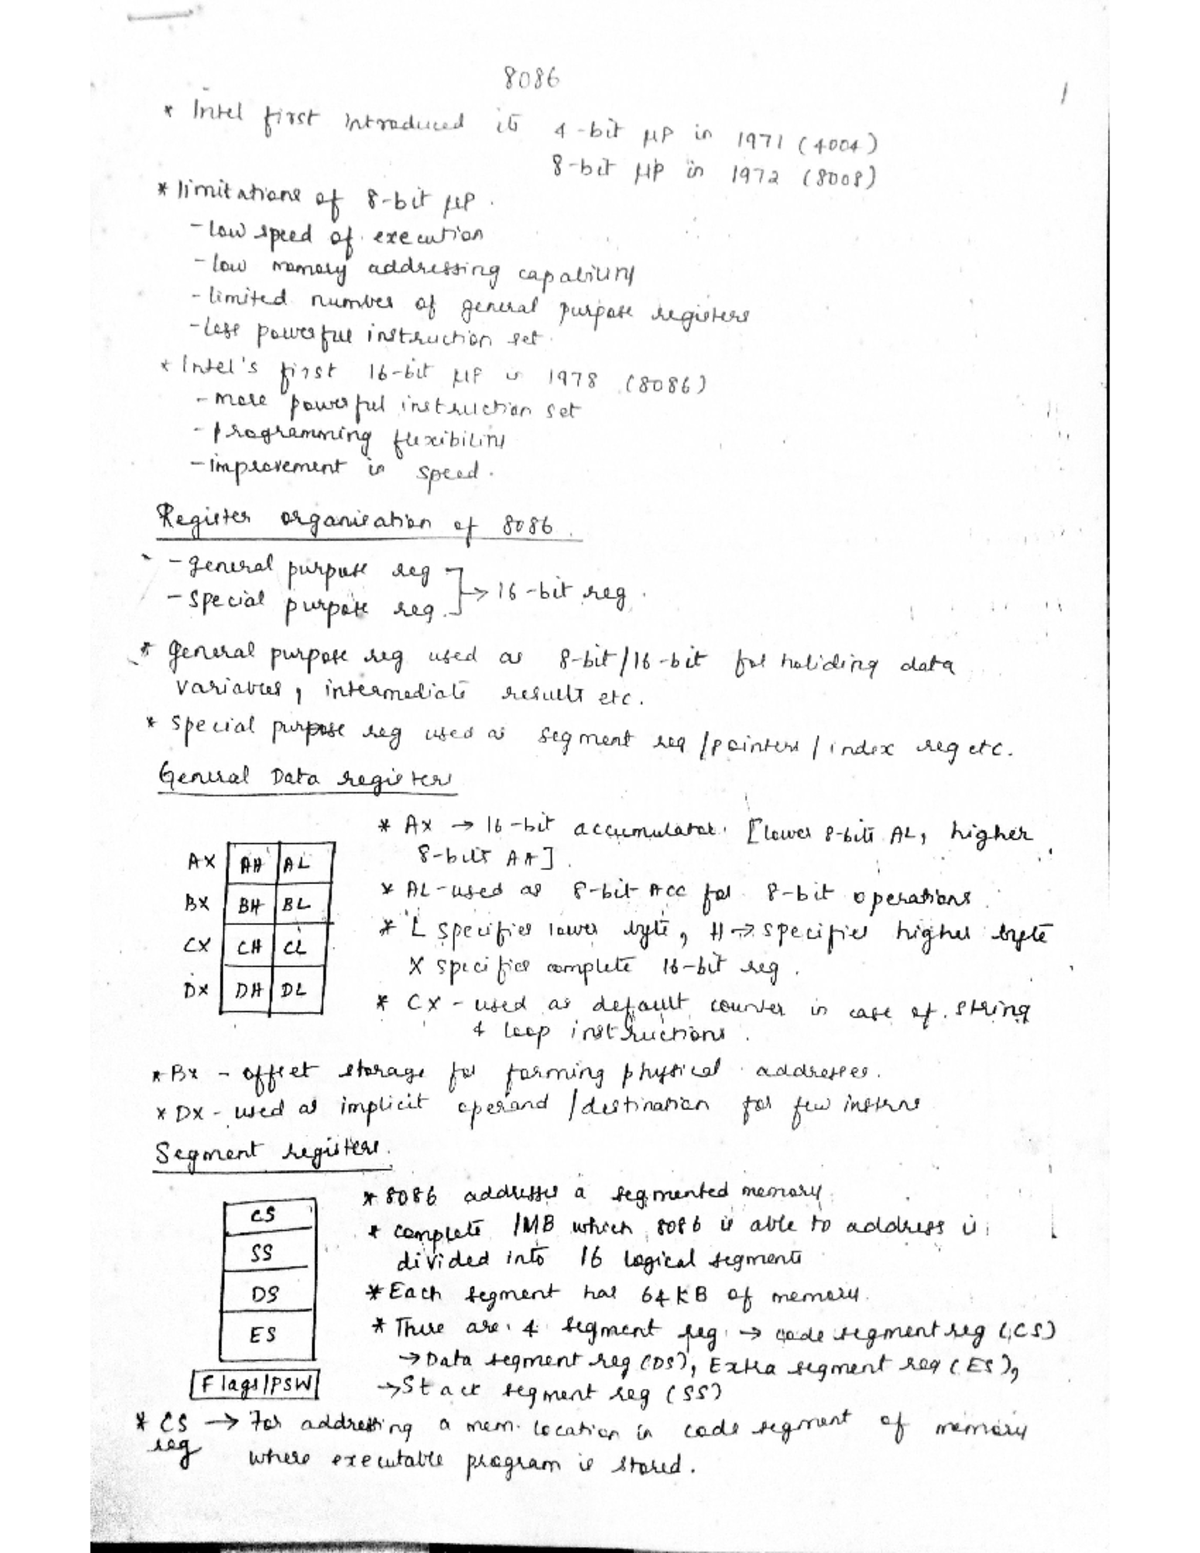 8086
1
* Intel first introduced its 4-bit μP in 1971 (4004)
8-bit μP in 1972 (8008)
* limitations of 8-bit μP.
- low speed of execution
- low memory addressing capability
- limited number of general purpose registers
- less powerful instruction set.
* Intel's first 16-bit μP is 1978 (8086)
- more powerful instruction set
- programming flexibility
- improvement in speed.
Register organisation of 8086.
- general purpose reg
- special purpose reg. → 16-bit reg.
* general purpose reg used as 8-bit/16-bit for holiding data
variables, intermediate results etc.
* special purpose reg used as segment reg /pointers / index reg etc.
General Data registers
* AX → 16-bit accumulator. [lower 8-bits AL, higher
8-bits AH].
* AL-used as 8-bit Acc for 8-bit operations.
* L specifies lower byte, H → specifies higher byte
X specifies complete 16-bit reg.
* CX - used as default counter in case of string
& loop instructions.
AX AH AL
BX BH BL
CX CH CL
DX DH DL
* BX - offset storage for forming physical addresses.
* DX - used as implicit operand /destination for few instrns
Segment registers.
CS
SS
DS
ES
Flags/PSW
* 8086 addresses a segmented memory.
* complete 1MB which 8086 is able to address is
divided into 16 logical segments
* Each segment has 64KB of memory.
* There are 4 segment reg. → code segment reg (CS)
→ Data segment reg (DS), Extra segment reg (ES),
→ Stack segment reg (SS)
* CS reg → For addressing a mem. location in code segment of memory
where executable program is stored.